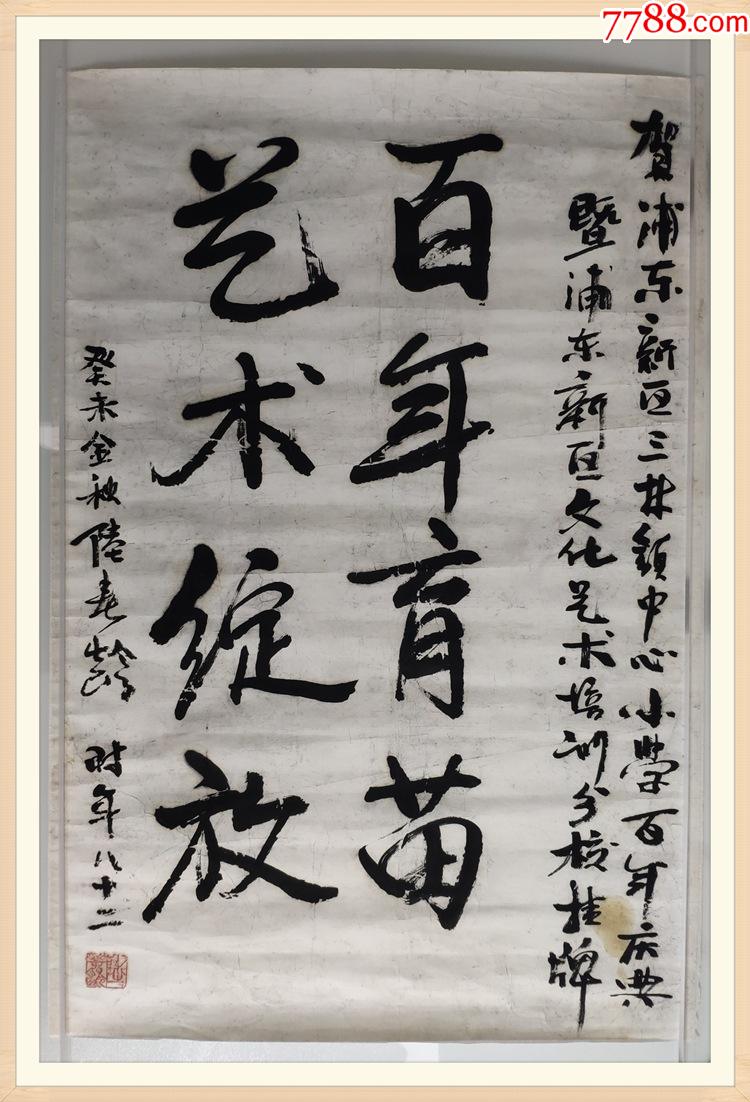 7788.com
贺浦东新区三林镇中心小学百年庆典
暨浦东新区文化艺术培训分校挂牌
百年育苗
艺术绽放
癸未金秋陆春龄 时年八十二